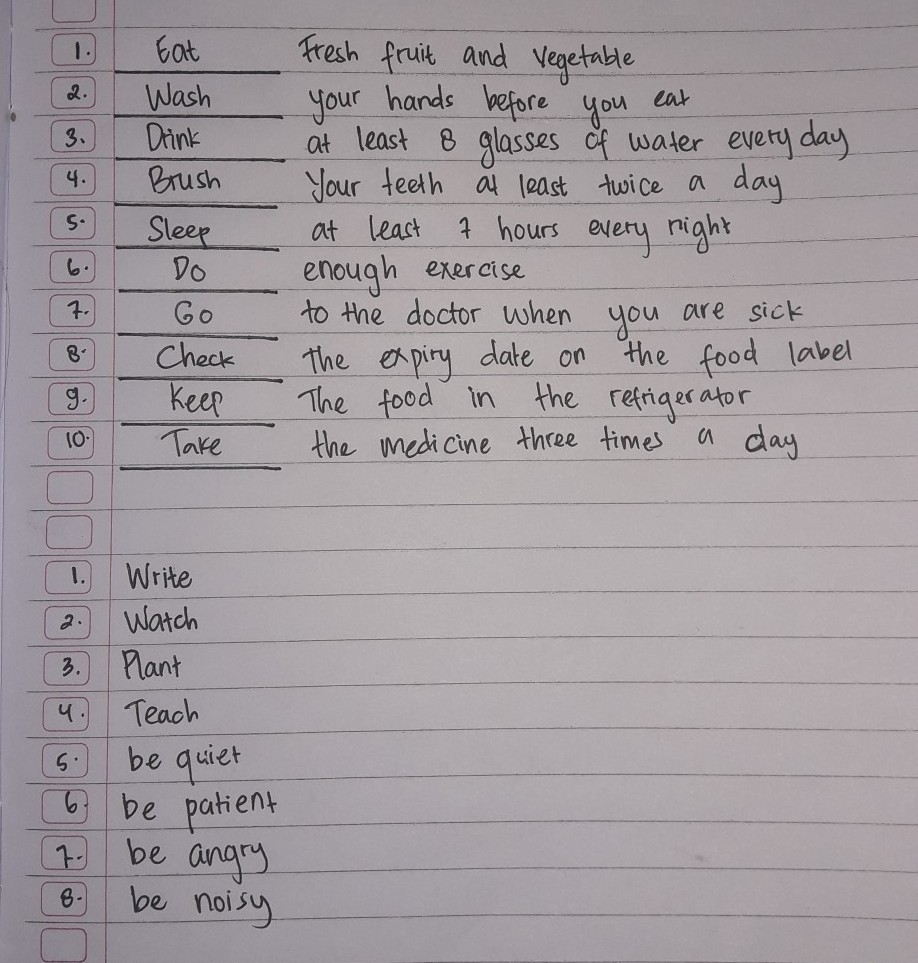 1. Eat Fresh fruit and vegetable
2. Wash your hands before you eat
3. Drink at least 8 glasses of water every day
4. Brush Your teeth at least twice a day
5. Sleep at least 7 hours every night
6. Do enough exercise
7. Go to the doctor when you are sick
8. Check the expiry date on the food label
9. Keep The food in the refrigerator
10. Take the medicine three times a day
1. Write
2. Watch
3. Plant
4. Teach
5. be quiet
6. be patient
7. be angry
8. be noisy